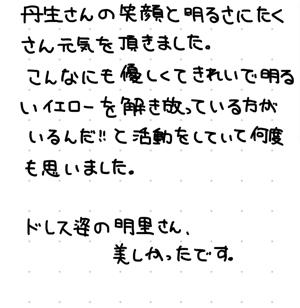 丹生さんの笑顔と明るさにたく
さん元気を頂きました。
こんなにも優しくてきれいで明る
いイエローを解き放っている方が
いるんだ!!と活動をしていて何度
も思いました。
ドレス姿の明里さん、
美しかったです。